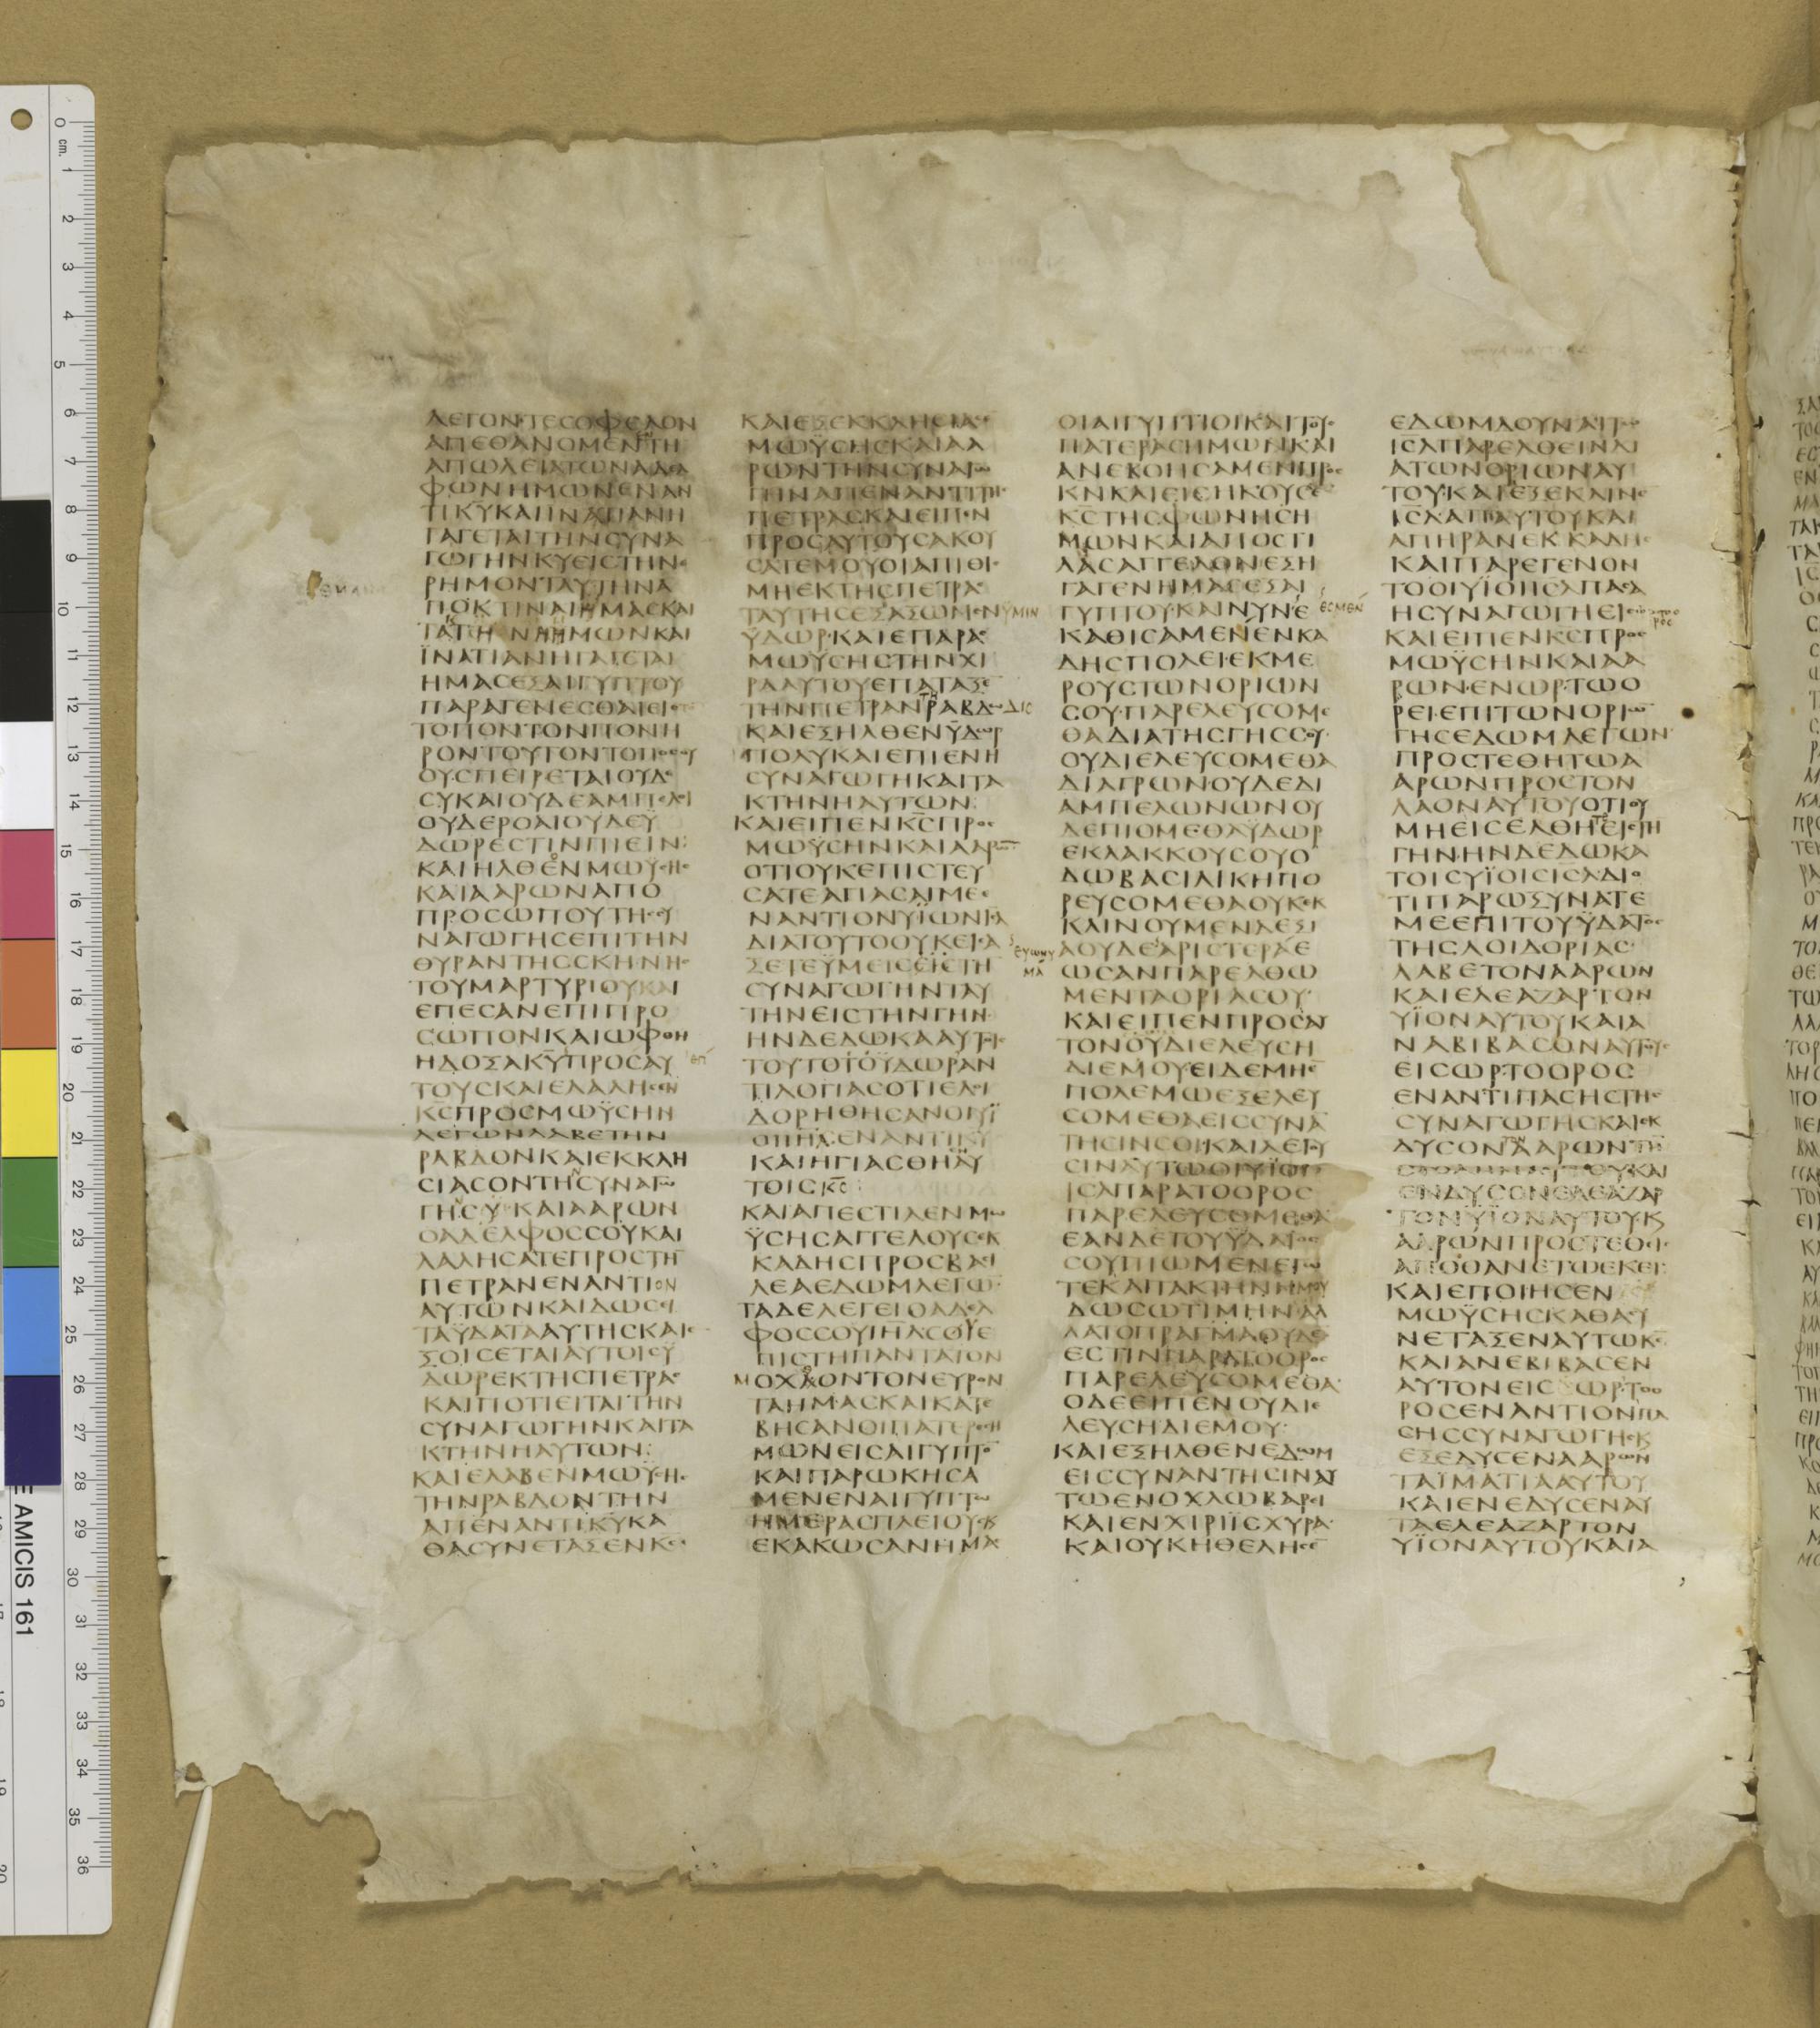 ΛΕΓΟΝΤΕϹΟΦΕΛΟΝ
ΑΠΕΘΑΝΟΜΕΝΤΗ
ΑΠΩΛΕΙΑΤΩΝΑΔΕΛ
ΦΩΝΗΜΩΝΕΝΑΝ
ΤΙΚΥΚΑΙΙΝΑΤΙΑΝΗ
ΓΑΓΕΤΑΙΤΗΝϹΥΝΑ
ΓΩΓΗΝΚΥΕΙϹΤΗΝΕ
ΡΗΜΟΝΤΑΥΤΗΝΑ
ΠΟΚΤΙΝΑΙΗΜΑϹΚΑΙ
ΪΝΑΤΙΑΝΗΓΑΓΕΤΑΙ
ΗΜΑϹΕΞΑΙΓΥΠΤΟΥ
ΠΑΡΑΓΕΝΕϹΘΑΙΕΙϹ
ΤΟΠΟΝΤΟΝΠΟΝΗ
ΡΟΝΤΟΥΤΟΝΤΟΠΟϹΟΥ
ΟΥϹΠΕΙΡΕΤΑΙΟΥΔΕ
ϹΥΚΑΙΟΥΔΕΑΜΠΕΛΟΙ
ΟΥΔΕΡΟΑΙΟΥΔΕΥ
ΔΩΡΕϹΤΙΝΠΙΕΙΝ
ΚΑΙΗΛΘΕΝΜΩΥϹΗϹ
ΚΑΙΑΑΡΩΝΑΠΟ
ΠΡΟϹΩΠΟΥΤΗϹϹΥ
ΝΑΓΩΓΗϹΕΠΙΤΗΝ
ΘΥΡΑΝΤΗϹϹΚΗΝΗϹ
ΤΟΥΜΑΡΤΥΡΙΟΥΚΑΙ
ΕΠΕϹΑΝΕΠΙΠΡΟ
ϹΩΠΟΝΚΑΙΩΦΘΗ
ΗΔΟΞΑΚΥΠΡΟϹΑΥ
ΤΟΥϹΚΑΙΕΛΑΛΗϹΕΝ
ΚϹΠΡΟϹΜΩΫϹΗΝ
ΛΕΓΩΝΛΑΒΕΤΗΝ
ΡΑΒΔΟΝΚΑΙΕΚΚΛΗ
ϹΙΑϹΟΝΤΗΝϹΥΝΑΓΩ
ΓΗΝϹΥΚΑΙΑΑΡΩΝ
ΟΑΔΕΛΦΟϹϹΟΥΚΑΙ
ΛΑΛΗϹΑΤΕΠΡΟϹΤΗ
ΠΕΤΡΑΝΕΝΑΝΤΙΟΝ
ΑΥΤΩΝΚΑΙΔΩϹΕΙ
ΤΑΫΔΑΤΑΑΥΤΗϹΚΑΙΕ
ΞΟΙϹΕΤΑΙΑΥΤΟΙϹΫ
ΔΩΡΕΚΤΗϹΠΕΤΡΑϹ
ΚΑΙΠΟΤΙΕΙΤΑΙΤΗΝ
ϹΥΝΑΓΩΓΗΝΚΑΙΤΑ
ΚΤΗΝΗΑΥΤΩΝ:
ΚΑΙΕΛΑΒΕΝΜΩΥϹΗϹ
ΤΗΝΡΑΒΔΟΝΤΗΝ
ΑΠΕΝΑΝΤΙΚΥΚΑ
ΘΑϹΥΝΕΤΑΞΕΝΚϹ
ΚΑΙΕΞΕΚΚΛΗϹΙΑϹΕ
ΜΩΫϹΗϹΚΑΙΑΑ
ΡΩΝΤΗΝϹΥΝΑΓΩ
ΓΗΝΑΠΕΝΑΝΤΙΤΗϹ
ΠΕΤΡΑϹΚΑΙΕΙΠΕΝ
ΠΡΟϹΑΥΤΟΥϹΑΚΟΥ
ϹΑΤΕΜΟΥΟΙΑΠΙΘΙϹ
ΜΗΕΚΤΗϹΠΕΤΡΑϹ
ΤΑΥΤΗϹΕΞΑΞΩΜΕΝΫΜΙΝ
ΫΔΩΡΚΑΙΕΠΑΡΑϹ
ΜΩΫϹΗϹΤΗΝΧΙ
ΡΑΑΥΤΟΥΕΠΑΤΑΞΕ
ΤΗΝΠΕΤΡΑΝΤΗΡΑΒΔΩΔΙϹ
ΚΑΙΕΞΗΛΘΕΝΫΔΩΡ
ΠΟΛΥΚΑΙΕΠΙΕΝΗ
ϹΥΝΑΓΩΓΗΚΑΙΤΑ
ΚΤΗΝΗΑΥΤΩΝ:
ΚΑΙΕΙΠΕΝΚϹΠΡΟϹ
ΜΩΫϹΗΝΚΑΙΑΑΡΩΝ
ΟΤΙΟΥΚΕΠΙϹΤΕΥ
ϹΑΤΕΑΓΙΑϹΑΙΜΕΕ
ΝΑΝΤΙΟΝΥΪΩΝΙϹΛ
ΔΙΑΤΟΥΤΟΟΥΚΕΙϹΑ
ΞΕΤΕΫΜΕΙϹΤΗ
ϹΥΝΑΓΩΓΗΝΤΑΥ
ΤΗΝΕΙϹΤΗΝΓΗΝ
ΗΝΔΕΔΩΚΑΑΥΤΟΙϹ
ΤΟΥΤΟΤΟΫΔΩΡΑΝ
ΤΙΛΟΓΙΑϹΟΤΙΕΛΟΙ
ΔΟΡΗΘΗϹΑΝΟΙΥΪ
ΟΙΙΗΛΕΝΑΝΤΙΚΥ
ΚΑΙΗΓΙΑϹΘΗΑΥ
ΤΟΙϹΚϹ
ΚΑΙΑΠΕϹΤΙΛΕΝΜΩ
ΫϹΗϹΑΓΓΕΛΟΥϹΕΚ
ΚΑΔΗϹΠΡΟϹΒΑϹΙ
ΛΕΑΕΔΩΜΛΕΓΩ
ΤΑΔΕΛΕΓΕΙΟΑΔΕΛ
ΦΟϹϹΟΥΙΗΛϹΟΥΕ
ΠΙϹΤΗΠΑΝΤΑΤΟΝ
ΜΟΧΘΟΝΤΟΝΕΥΡΟΝ
ΤΑΗΜΑϹΚΑΙΚΑΤΕ
ΒΗϹΑΝΟΙΠΑΤΕΡΕϹΗ
ΜΩΝΕΙϹΑΙΓΥΠΤΟ
ΚΑΙΠΑΡΩΚΗϹΑ
ΜΕΝΕΝΑΙΓΥΠΤΩ
ΗΜΕΡΑϹΠΛΕΙΟΥϹΚ
ΕΚΑΚΩϹΑΝΗΜΑϹ
ΟΙΑΙΓΥΠΤΙΟΙΚΑΙΤΟΥϹ
ΠΑΤΕΡΑϹΗΜΩΝΚΑΙ
ΑΝΕΒΟΗϹΑΜΕΝΠΡΟϹ
ΚΝΚΑΙΕΙϹΗΚΟΥϹΕ
ΚϹΤΗϹΦΩΝΗϹΗ
ΜΩΝΚΑΙΑΠΟϹΤΙ
ΛΑϹΑΓΓΕΛΟΝΕΞΗ
ΓΑΓΕΝΗΜΑϹΕΞΑΙ
ΓΥΠΤΟΥΚΑΙΝΥΝΕ
ΕϹΜΕΝ
ΚΑΘΙϹΑΜΕΝΕΝΚΑ
ΔΗϹΠΟΛΕΙΕΚΜΕ
ΡΟΥϹΤΩΝΟΡΙΩΝ
ϹΟΥΠΑΡΕΛΕΥϹΟΜΕ
ΘΑΔΙΑΤΗϹΓΗϹϹΟΥ
ΟΥΔΙΕΛΕΥϹΟΜΕΘΑ
ΔΙΑΓΡΩΝΟΥΔΕΔΙ
ΑΜΠΕΛΩΝΩΝΟΥ
ΔΕΠΙΟΜΕΘΑΫΔΩΡ
ΕΚΛΑΚΚΟΥϹΟΥΟ
ΔΩΒΑϹΙΛΙΚΗΠΟ
ΡΕΥϹΟΜΕΘΑΟΥΚΕΚ
ΚΛΙΝΟΥΜΕΝΔΕΞΙ
ΕΥΩΝΥ
ΜΑ
ΑΟΥΔΕΑΡΙϹΤΕΡΑΕ
ΩϹΑΝΠΑΡΕΛΘΩ
ΜΕΝΤΑΟΡΙΑϹΟΥ
ΚΑΙΕΙΠΕΝΠΡΟϹΑΥ
ΤΟΝΟΥΔΙΕΛΕΥϹΗ
ΔΙΕΜΟΥΕΙΔΕΜΗΕ
ΠΟΛΕΜΩΕΞΕΛΕΥ
ϹΟΜΕΘΑΕΙϹϹΥΝΑ
ΤΗϹΙΝϹΟΙΚΑΙΛΕΓΟΥ
ϹΙΝΑΥΤΩΟΙΥΪΟΙ
ΙϹΛΠΑΡΑΤΟΟΡΟϹ
ΠΑΡΕΛΕΥϹΟΜΕΘΑ
ΕΑΝΔΕΤΟΥΫΔΑΤΟϹ
ϹΟΥΠΙΩΜΕΝΕΓΩ
ΤΕΚΑΙΤΑΚΤΗΝΗΜΟΥ
ΔΩϹΩΤΙΜΗΝΑΛ
ΛΑΤΟΠΡΑΓΜΑΟΥΔΕΝ
ΕϹΤΙΝΠΑΡΑΤΟΟΡΟϹ
ΠΑΡΕΛΕΥϹΟΜΕΘΑ
ΟΔΕΕΙΠΕΝΟΥΔΙΕ
ΛΕΥϹΗΔΙΕΜΟΥ
ΚΑΙΕΞΗΛΘΕΝΕΔΩΜ
ΕΙϹϹΥΝΑΝΤΗϹΙΝΑΥ
ΤΩΕΝΟΧΛΩΒΑΡΕΙ
ΚΑΙΕΝΧΙΡΙΪϹΧΥΡΑ
ΚΑΙΟΥΚΗΘΕΛΗϹΕ
ΕΔΩΜΔΟΥΝΑΙΤΩ
ΙϹΛΠΑΡΕΛΘΕΙΝΔΙ
ΑΤΩΝΟΡΙΩΝΑΥ
ΤΟΥΚΑΙΕΞΕΚΛΙΝΕ
ΙϹΛΑΠΑΥΤΟΥΚΑΙ
ΑΠΗΡΑΝΕΚΚΑΔΗϹ
ΚΑΙΠΑΡΕΓΕΝΟΝ
ΤΟΟΙΥΪΟΙΙϹΛΠΑϹΑ
ΗϹΥΝΑΓΩΓΗΕΙϹ
ΚΑΙΕΙΠΕΝΚϹΠΡΟϹ
ΜΩΫϹΗΝΚΑΙΑΑ
ΡΩΝΕΝΩΡΤΩΟ
ΡΕΙΕΠΙΤΩΝΟΡΙΩ
ΓΗϹΕΔΩΜΛΕΓΩΝ
ΠΡΟϹΤΕΘΗΤΩΑ
ΑΡΩΝΠΡΟϹΤΟΝ
ΛΑΟΝΑΥΤΟΥΟΤΙΟΥ
ΜΗΕΙϹΕΛΘΗΤΕΕΙϹΤΗ
ΓΗΝΗΝΔΕΔΩΚΑ
ΤΟΙϹΥΪΟΙϹΙϹΛΔΙΟ
ΤΙΠΑΡΩΞΥΝΑΤΕ
ΜΕΕΠΙΤΟΥΫΔΑΤΟϹ
ΤΗϹΛΟΙΔΟΡΙΑϹ
ΛΑΒΕΤΟΝΑΑΡΩΝ
ΚΑΙΕΛΕΑΖΑΡΤΟΝ
ΥΪΟΝΑΥΤΟΥΚΑΙΑ
ΝΑΒΙΒΑϹΟΝΑΥΤΟΥϹ
ΕΙϹΩΡΤΟΟΡΟϹ
ΕΝΑΝΤΙΠΑϹΗϹΤΗϹ
ϹΥΝΑΓΩΓΗϹΚΑΙΕΚ
ΔΥϹΟΝΤΟΝΑΑΡΩΝΤΗ
ϹΤΟΛΗΝΑΥΤΟΥΚΑΙ
ΕΝΔΥϹΟΝΕΛΕΑΖΑΡ
ΤΟΝΫΪΟΝΑΥΤΟΥΚ
ΑΑΡΩΝΠΡΟϹΤΕΘΙϹ
ΑΠΟΘΑΝΕΤΩΕΚΕΙ
ΚΑΙΕΠΟΙΗϹΕΝ
ΜΩΫϹΗϹΚΑΘΑϹΥ
ΝΕΤΑΞΕΝΑΥΤΩΚϹ
ΚΑΙΑΝΕΒΙΒΑϹΕΝ
ΑΥΤΟΝΕΙϹΩΡΤΟΟ
ΡΟϹΕΝΑΝΤΙΟΝΠΑ
ϹΗϹϹΥΝΑΓΩΓΗϹΚ
ΕΞΕΔΥϹΕΝΑΑΡΩΝ
ΤΑΪΜΑΤΙΑΑΥΤΟΥ
ΚΑΙΕΝΕΔΥϹΕΝΑΥ
ΤΑΕΛΕΑΖΑΡΤΟΝ
ΥΪΟΝΑΥΤΟΥΚΑΙΑ
AMICIS 161